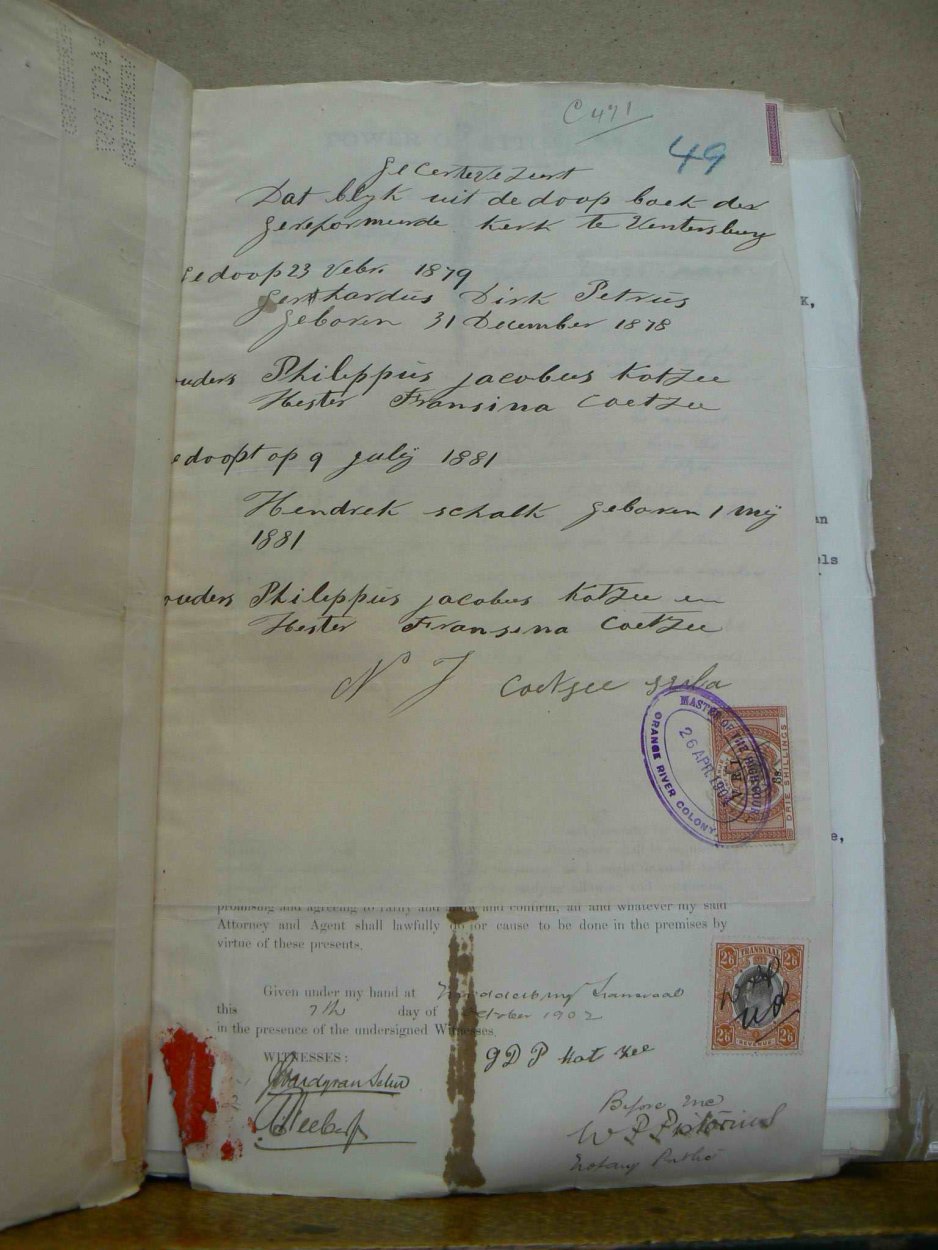 C 471
49
geCerteveseert
Dat blyk uit de doop boek der
gereformeerde kerk te Ventersburg
gedoop 23 Vebr. 1879
gerhardus Dirk Petrus
geboren 31 December 1878
ouders Philippus jacobus Kotzee
Hester Fransina Coetzee
edoopt op 9 july 1881
Hendrek schalk geboren 1 mij
1881
ouders Philippus jacobus Kotzee en
Hester Fransena Coetzee
N J Coetzee
MASTER OF THE HIGH COURT
26 APR 190
ORANGE RIVER COLONY
3s.
DRIE SHILLINGS
promising and agreeing to ratify and allow and confirm, all and whatever my said
Attorney and Agent shall lawfully do or cause to be done in the premises by
virtue of these presents.
Given under my hand at Transvaal
this 7th day of October 1902
in the presence of the undersigned Witnesses.
WITNESSES:
G D P Kotzee
Before me
W P Pistorius
Notary Public
TRANSVAAL
2/6 2/6
2/6 2/6
REVENUE
K,
an
els
e,